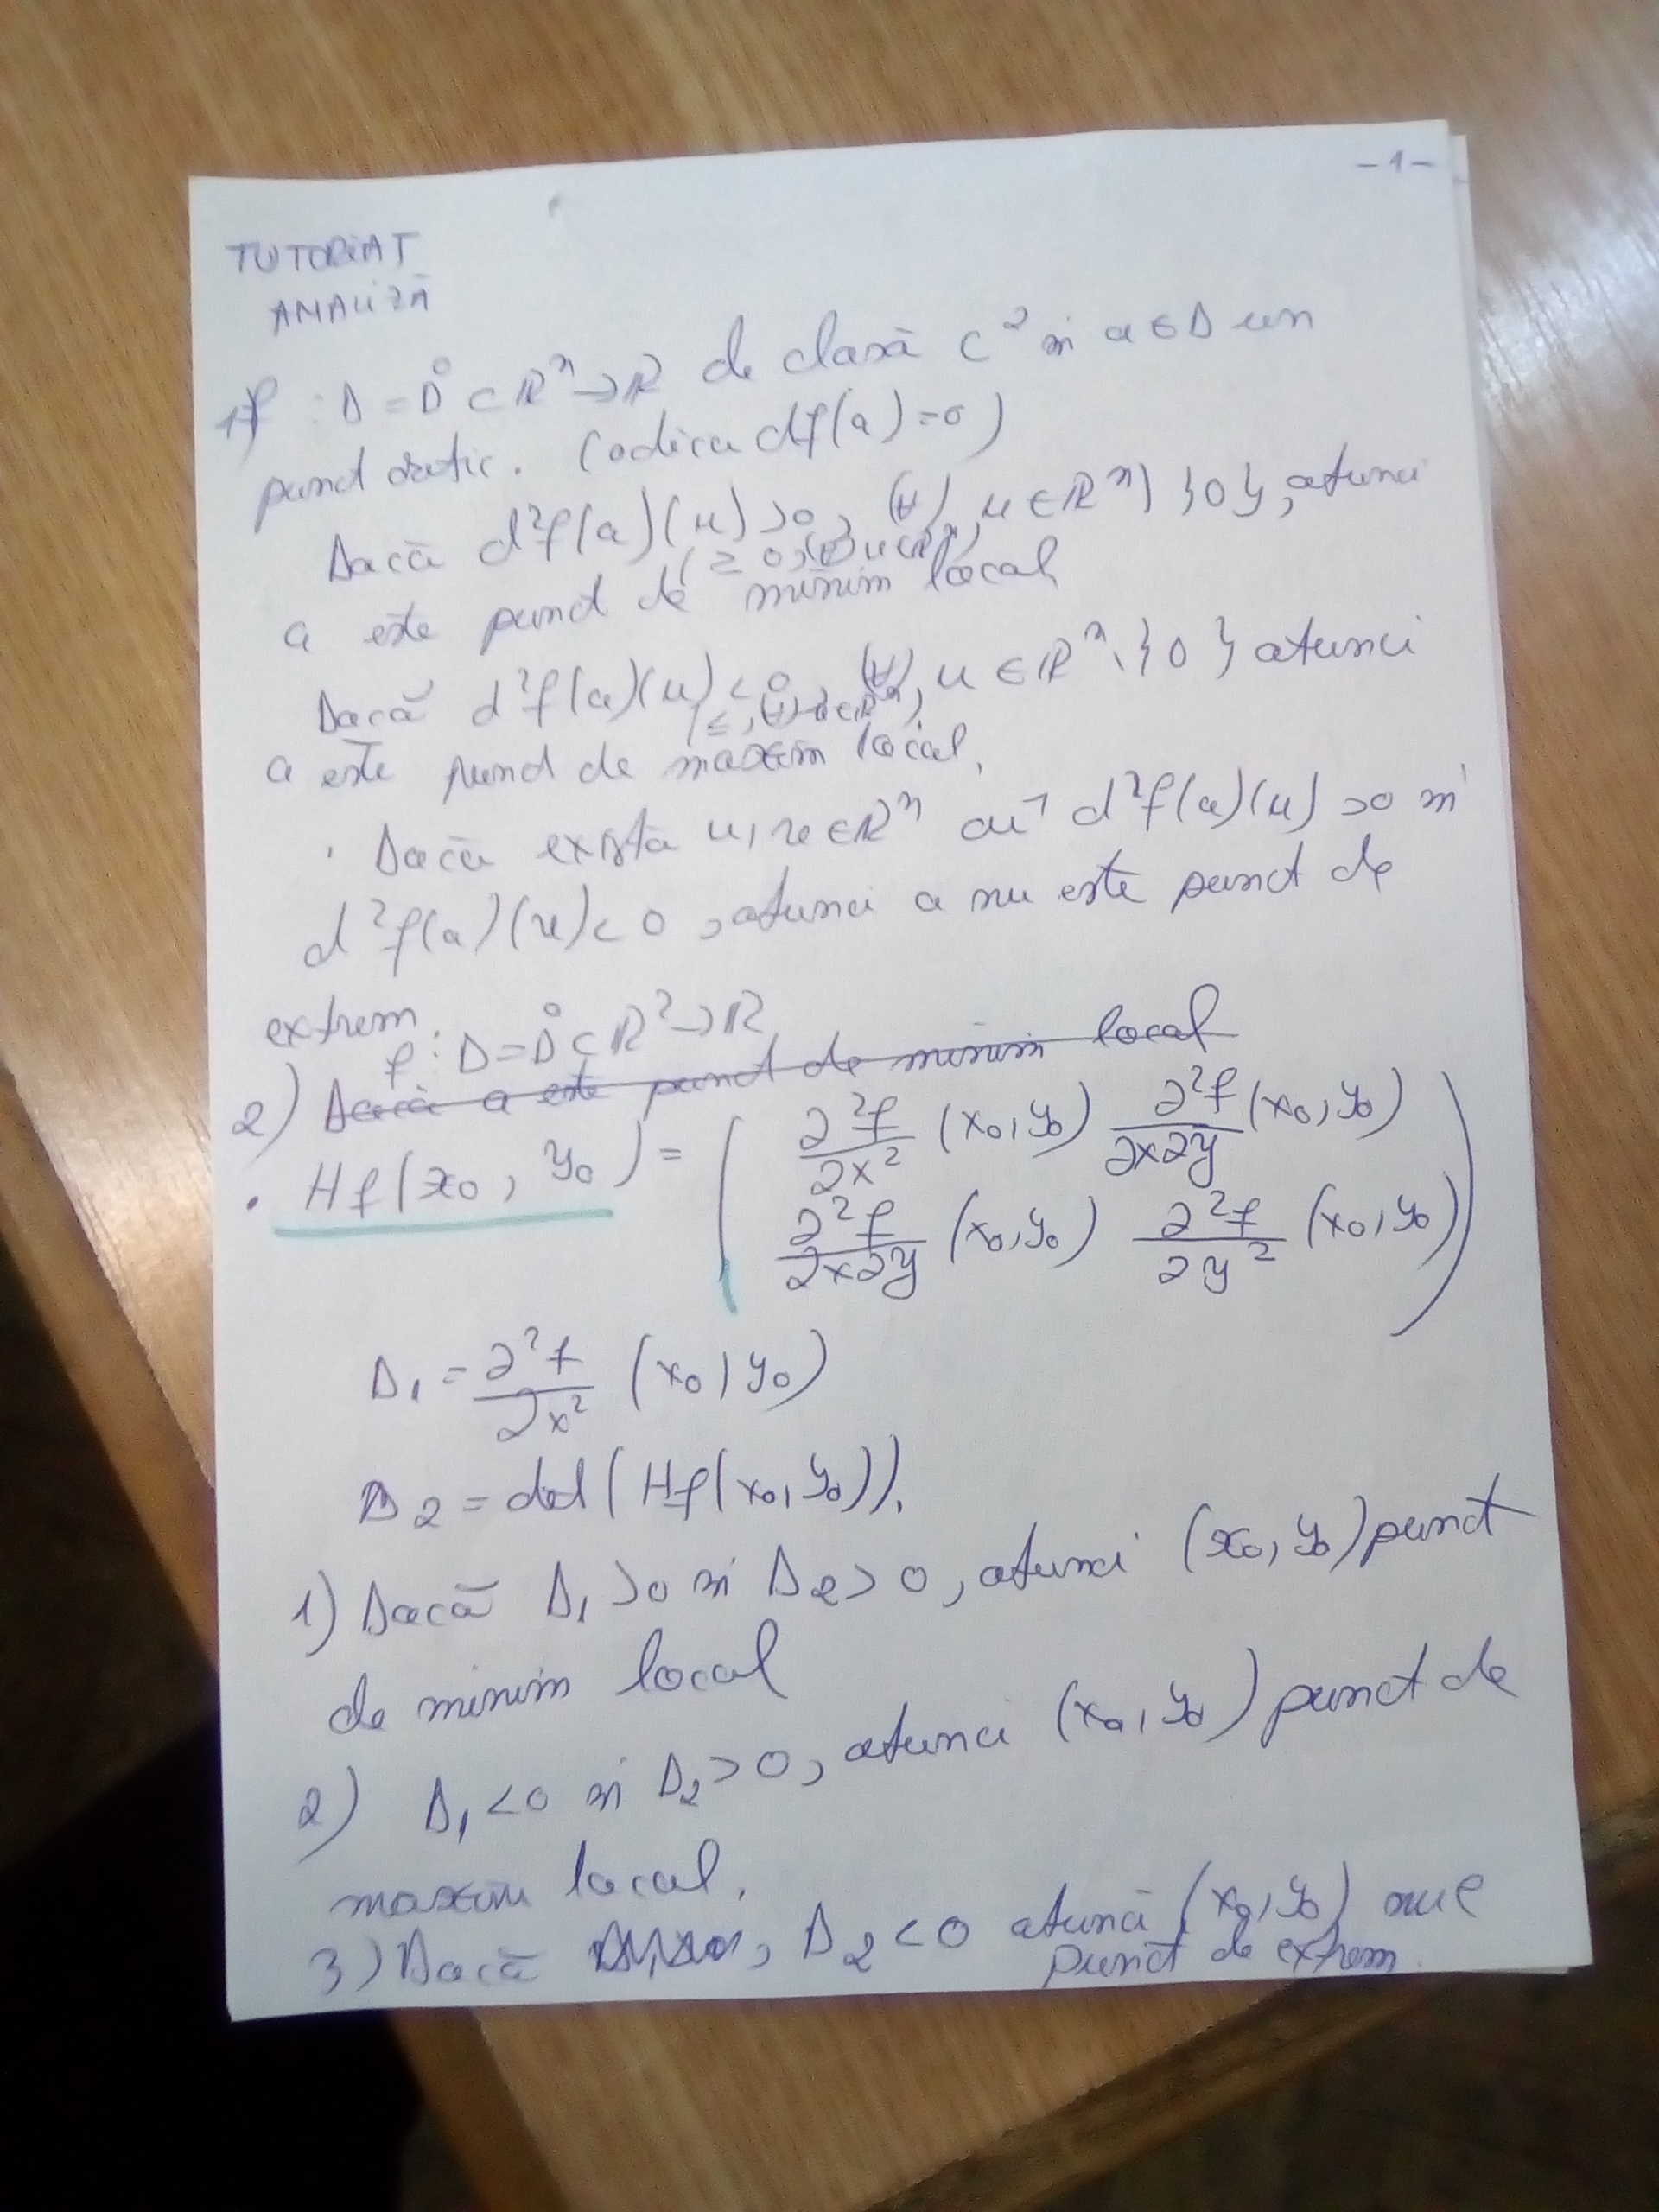 -1-
TUTORIAT
ANALIZĂ
1) f : D = D̊ ⊂ ℝⁿ → ℝ de clasă C² și a ∈ D un
punct critic. (adica df(a)=0)
Dacă d²f(a)(u) > 0, (∀) u ∈ ℝⁿ \ {0}, atunci
(≥ 0, (∀) u ∈ ℝⁿ)
a este punct de minim local
Dacă d²f(a)(u) < 0, (∀), u ∈ ℝⁿ \ {0} atunci
(≤, (∀) u ∈ ℝⁿ)
a este punct de maxim local.
· Dacă există u, v ∈ ℝⁿ aî d²f(a)(u) > 0 și
d²f(a)(v) < 0, atunci a nu este punct de
extrem.
f : D = D̊ ⊂ ℝ² → ℝ
2) Dacă a este punct de minim local
· Hf(x₀, y₀) = ( ∂²f/∂x² (x₀, y₀) ∂²f/∂x∂y (x₀, y₀)
∂²f/∂x∂y (x₀, y₀) ∂²f/∂y² (x₀, y₀) )
Δ₁ = ∂²f/∂x² (x₀, y₀)
Δ₂ = det(Hf(x₀, y₀)).
1) Dacă Δ₁ > 0 și Δ₂ > 0, atunci (x₀, y₀) punct
de minim local
2) Δ₁ < 0 și Δ₂ > 0, atunci (x₀, y₀) punct de
maxim local.
3) Dacă , Δ₂ < 0 atunci (x₀, y₀) nu e
punct de extrem.